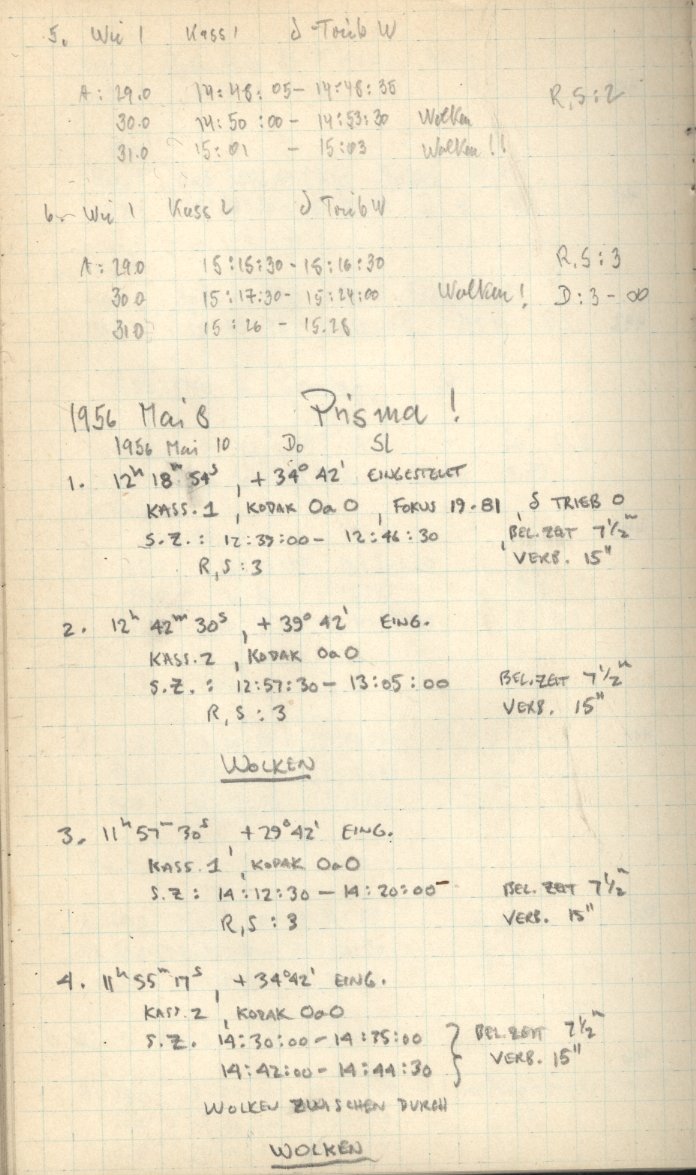 5. Wie 1 Kass 1 δ-Trieb W
A: 29.0 14:48:05 – 14:48:35 R,S:2
30.0 14:50:00 – 14:53:30 Wolken
31.0 15:01 – 15:03 Wolken!!
6. Wie 1 Kass 2 δ Trieb W
A: 29.0 15:15:30 - 15:16:30 R,S:3
30.0 15:17:30 - 15:24:00 Wolken! D:3-00
31.0 15:26 – 15.28
1956 Mai 8 Prisma!
1956 Mai 10 Do SL
1. 12h 18m 54s, +34° 42' EINGESTELLT
KASS.1, KODAK OaO, FOKUS 19.81, δ TRIEB 0
S.Z.: 12:39:00 – 12:46:30, BEL.ZEIT 7 1/2m
R,S:3 VERB. 15"
2. 12h 42m 30s, +39° 42' EING.
KASS.2, KODAK OaO
S.Z.: 12:57:30 – 13:05:00 BEL.ZEIT 7 1/2m
R,S:3 VERB. 15"
WOLKEN
3. 11h 57m 30s, +29° 42' EING.
KASS.1, KODAK OaO
S.Z: 14:12:30 – 14:20:00 BEL.ZEIT 7 1/2m
R,S:3 VERB. 15"
4. 11h 55m 17s, +34° 42' EING.
KASS.2, KODAK OaO
S.Z. 14:30:00 – 14:35:00 } BEL.ZEIT 7 1/2m
14:42:00 – 14:44:30 VERB. 15"
WOLKEN ZWISCHEN DURCH
WOLKEN